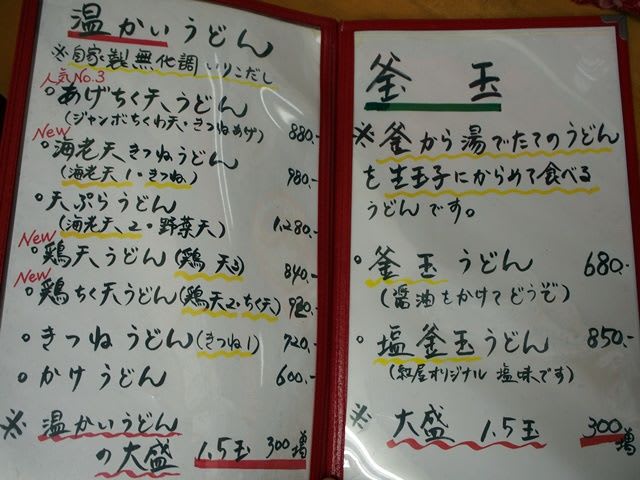 温かいうどん
※自家製無化調いりこだし
人気No.3
○あげちく天うどん
(ジャンボちくわ天・きつねあげ) 880.-
New
○海老天きつねうどん
(海老天1・きつね1) 980.-
○天ぷらうどん
(海老天2・野菜天) 1,280.-
New
○鶏天うどん(鶏天3) 840.-
New
○鶏ちく天うどん(鶏天2・ちく天)
○きつねうどん(きつね1) 720.-
○かけうどん 600.-
※温かいうどん
の大盛 1.5玉 300増
釜玉
※釜から湯でたてのうどん
を生玉子にからめて食べる
うどんです。
○釜玉うどん 680.-
(醤油をかけてどうぞ)
○塩釜玉うどん 850.-
(紅屋オリジナル塩味です)
※大盛 1.5玉 300増